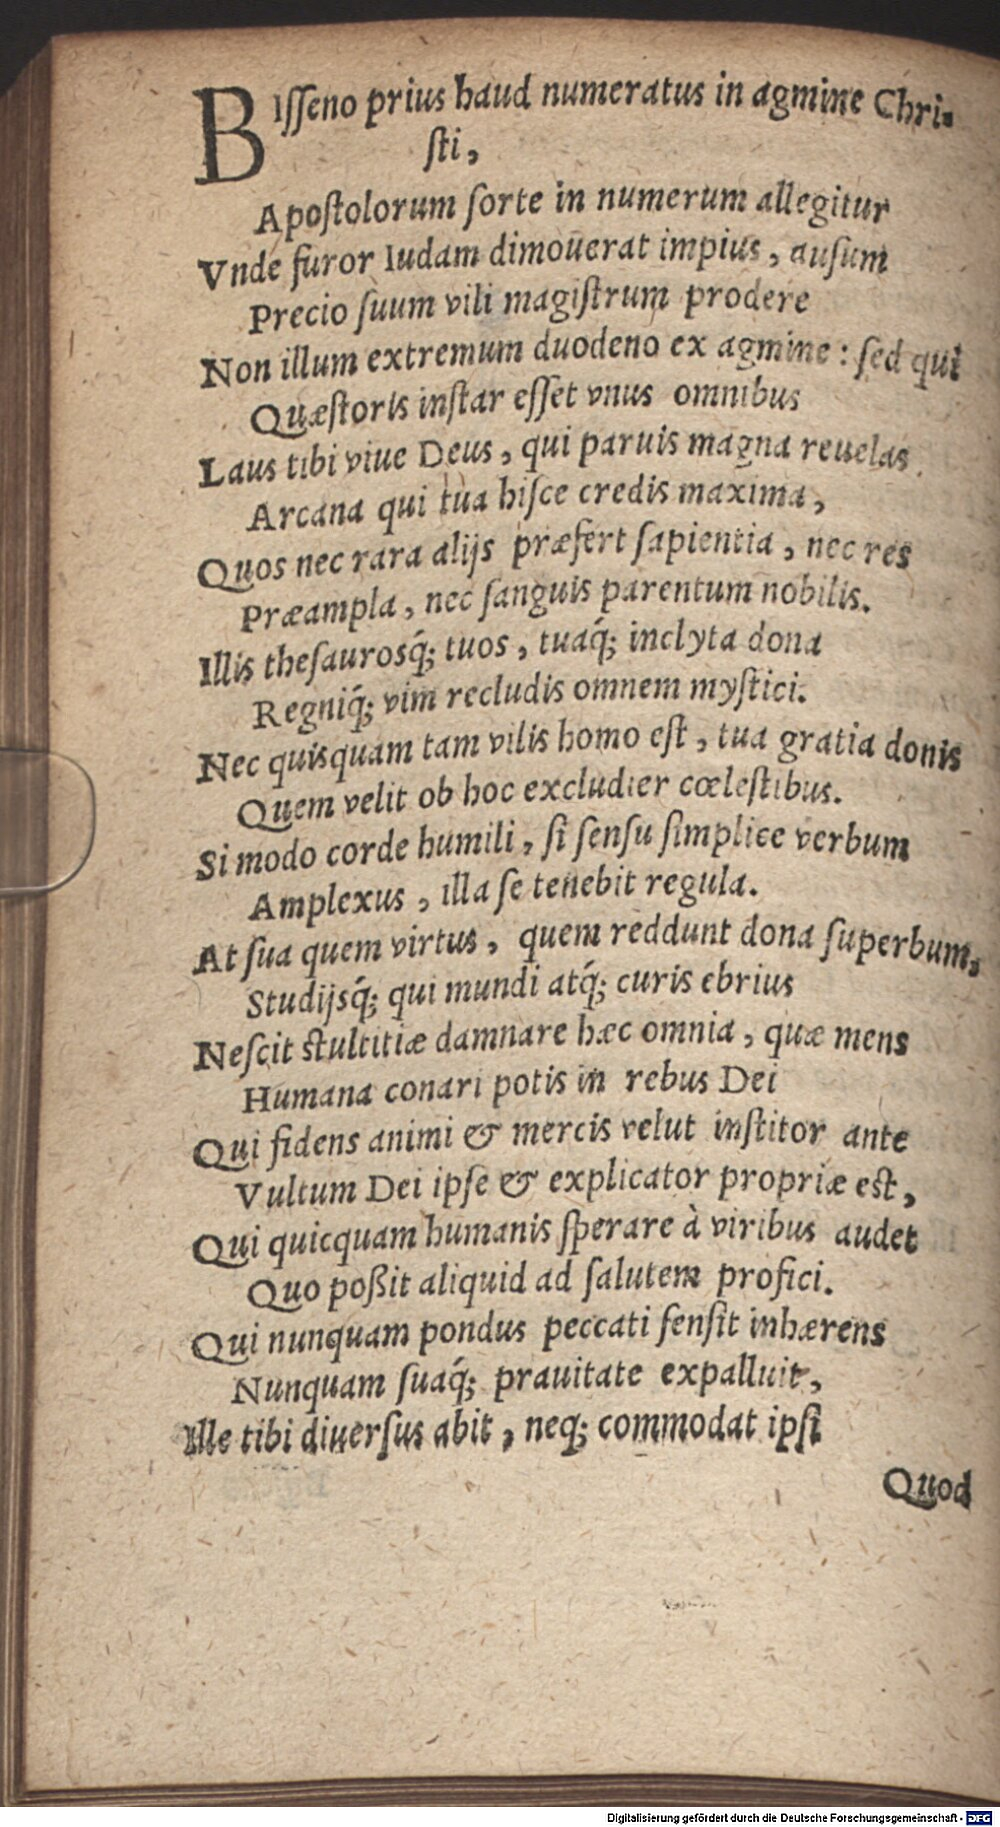 BIſſeno prius haud numeratus in agmine Chri-
ſti,
Apoſtolorum ſorte in numerum allegitur
Vnde furor Iudam dimouerat impius, auſum
Precio ſuum vili magiſtrum prodere
Non illum extremum duodeno ex agmine: ſed qui
Quæſtoris inſtar eſſet vnus omnibus
Laus tibi viue Deus, qui paruis magna reuelas
Arcana qui tua hiſce credis maxima,
Quos nec rara alijs præfert ſapientia, nec res
Præampla, nec ſanguis parentum nobilis.
Illis theſaurosq́; tuos, tuaq́; inclyta dona
Regniq́; vim recludis omnem myſtici.
Nec quisquam tam vilis homo eſt, tua gratia donis
Quem velit ob hoc excludier cœleſtibus.
Si modo corde humili, ſi ſenſu ſimplice verbum
Amplexus, illa ſe tenebit regula.
At ſua quem virtus, quem reddunt dona ſuperbum,
Studijsq́; qui mundi atq́; curis ebrius
Neſcit ſtultitiæ damnare hæc omnia, quæ mens
Humana conari potis in rebus Dei
Qui fidens animi & mercis velut inſtitor ante
Vultum Dei ipſe & explicator propriæ eſt,
Qui quicquam humanis ſperare à viribus audet
Quo poßit aliquid ad ſalutem profici.
Qui nunquam pondus peccati ſenſit inhærens
Nunquam ſuaq́; prauitate expalluit,
Ille tibi diuerſus abit, neq; commodat ipſi
Quod
Digitalisierung gefördert durch die Deutsche Forschungsgemeinschaft - DFG